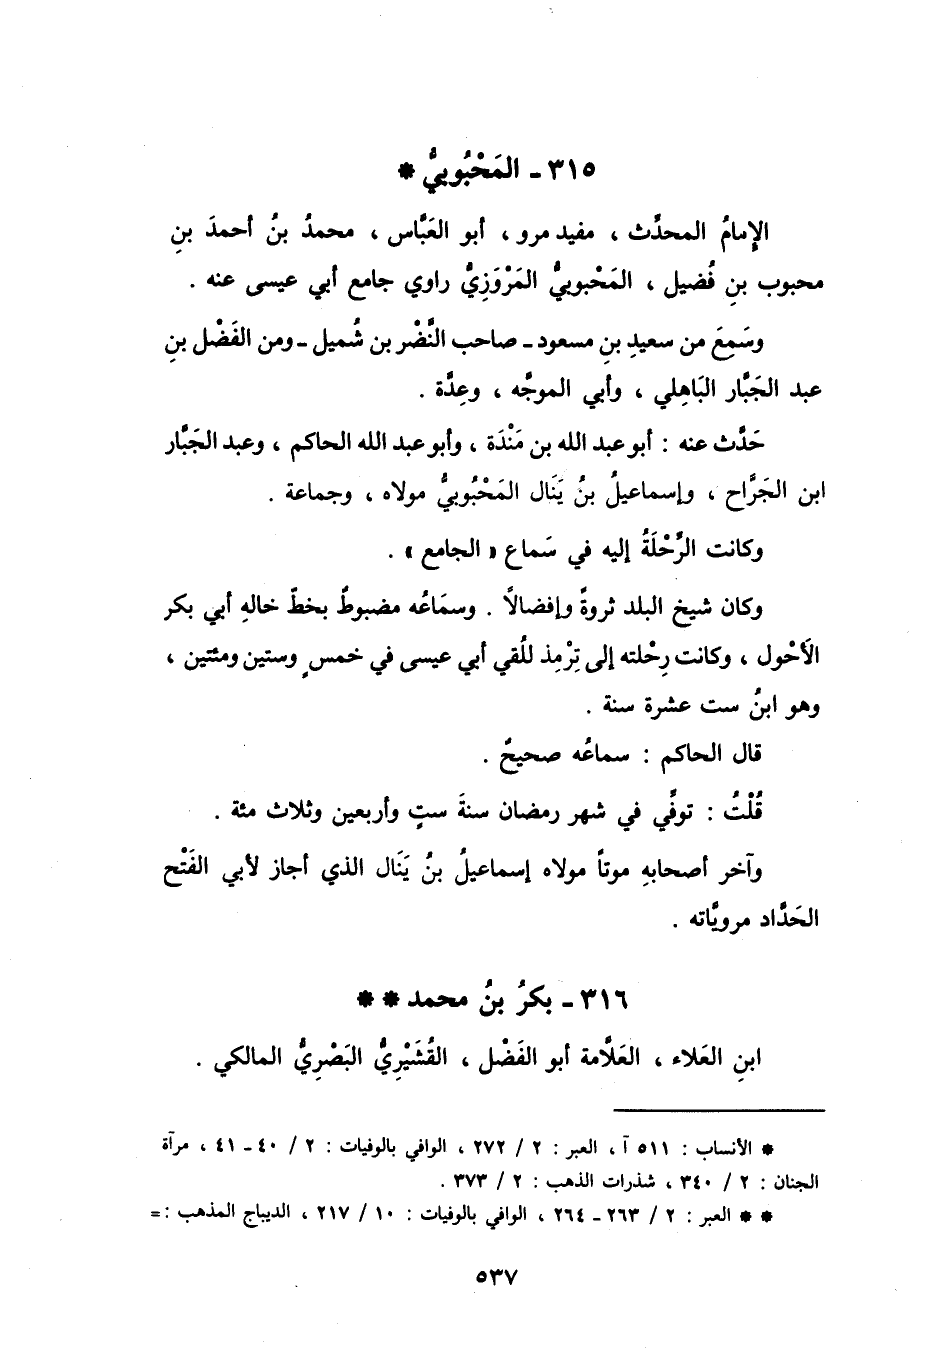 ٣١٥ - المَحْبُوبيُّ *
الإِمامُ المحدَّث ، مفيد مرو ، أبو العَبَّاس ، محمدُ بنُ أحمدَ بنِ
محبوب بنِ فُضيل ، المَحْبوبيُّ المَرْوَزِيُّ راوي جامع أبي عيسى عنه .
وسَمِعَ من سعيدِ بنِ مسعود - صاحب النَّضْر بن شُميل - ومن الفَضْل بنِ
عبد الجَبَّار البَاهِلي ، وأبي الموجَّه ، وعِدَّة .
حَدَّث عنه : أبو عبد الله بن مَنْدَة ، وأبو عبد الله الحاكم ، وعبد الجَبَّار
ابن الجَرَّاح ، وإسماعيلُ بنُ يَنَال المَحْبُوبيُّ مولاه ، وجماعة .
وكانت الرِّحْلَةُ إليه في سَماع « الجامع » .
وكان شيخ البلد ثروةً وإفضالاً . وسمَاعُه مضبوطٌ بخطّ خالهِ أبي بكر
الأَحْول ، وكانت رِحْلته إلى تِرْمِذ للُقي أبي عيسى في خمسٍ وستين ومئتين ،
وهو ابنُ ست عشرة سنة .
قال الحاكم : سماعُه صحيحٌ .
قُلْتُ : توفِّي في شهر رمضان سنةَ ستٍ وأربعين وثلاث مئة .
وآخر أصحابهِ موتاً مولاه إسماعيلُ بنُ يَنَال الذي أجاز لأبي الفَتْح
الحَدَّاد مرويَّاته .
٣١٦ - بكرُ بنُ محمد * *
ابنِ العَلاء ، العَلَّامة أبو الفَضْل ، القُشَيْرِيُّ البَصْرِيُّ المالكي .
* الأنساب : ٥١١ آ ، العبر : ٢ / ٢٧٢ ، الوافي بالوفيات : ٢ / ٤٠ - ٤١ ، مرآة
الجنان : ٢ / ٣٤٠ ، شذرات الذهب : ٢ / ٣٧٣ .
* * العبر : ٢ / ٢٦٣ - ٢٦٤ ، الوافي بالوفيات : ١٠ / ٢١٧ ، الديباج المذهب : =
٥٣٧